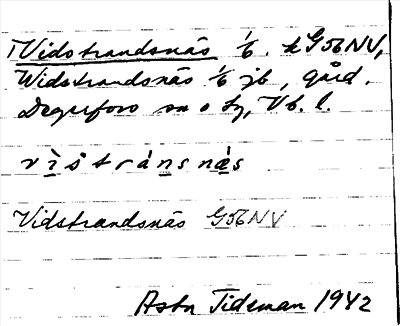 Vidstrandsnäs 1/6. k G56NV,
Widstrandsnäs 1/6 jb, gård.
Degerfors sn o tg, Vb. l.
vìstrànsnä́s
Vidstrandsnäs G56NV
Asta Tideman 1942